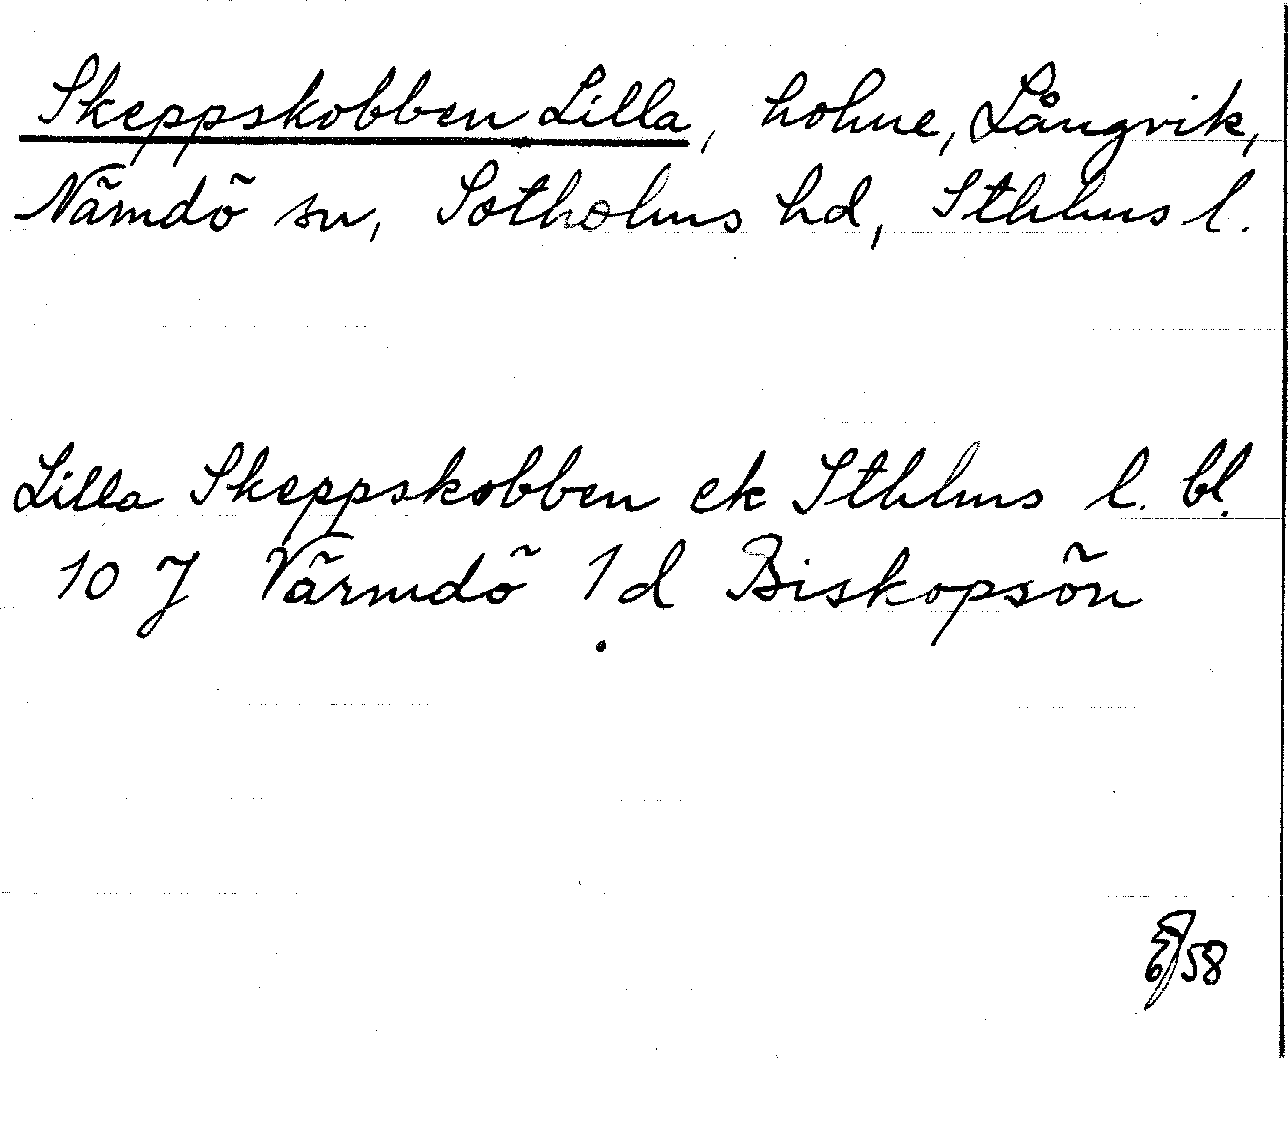 Skeppskobben Lilla, holme, Långvik,
Nämdö sn, Sotholms hd, Sthlms l.
Lilla Skeppskobben ek Sthlms l. bl.
10 J Värmdö 1d Biskopsön
58